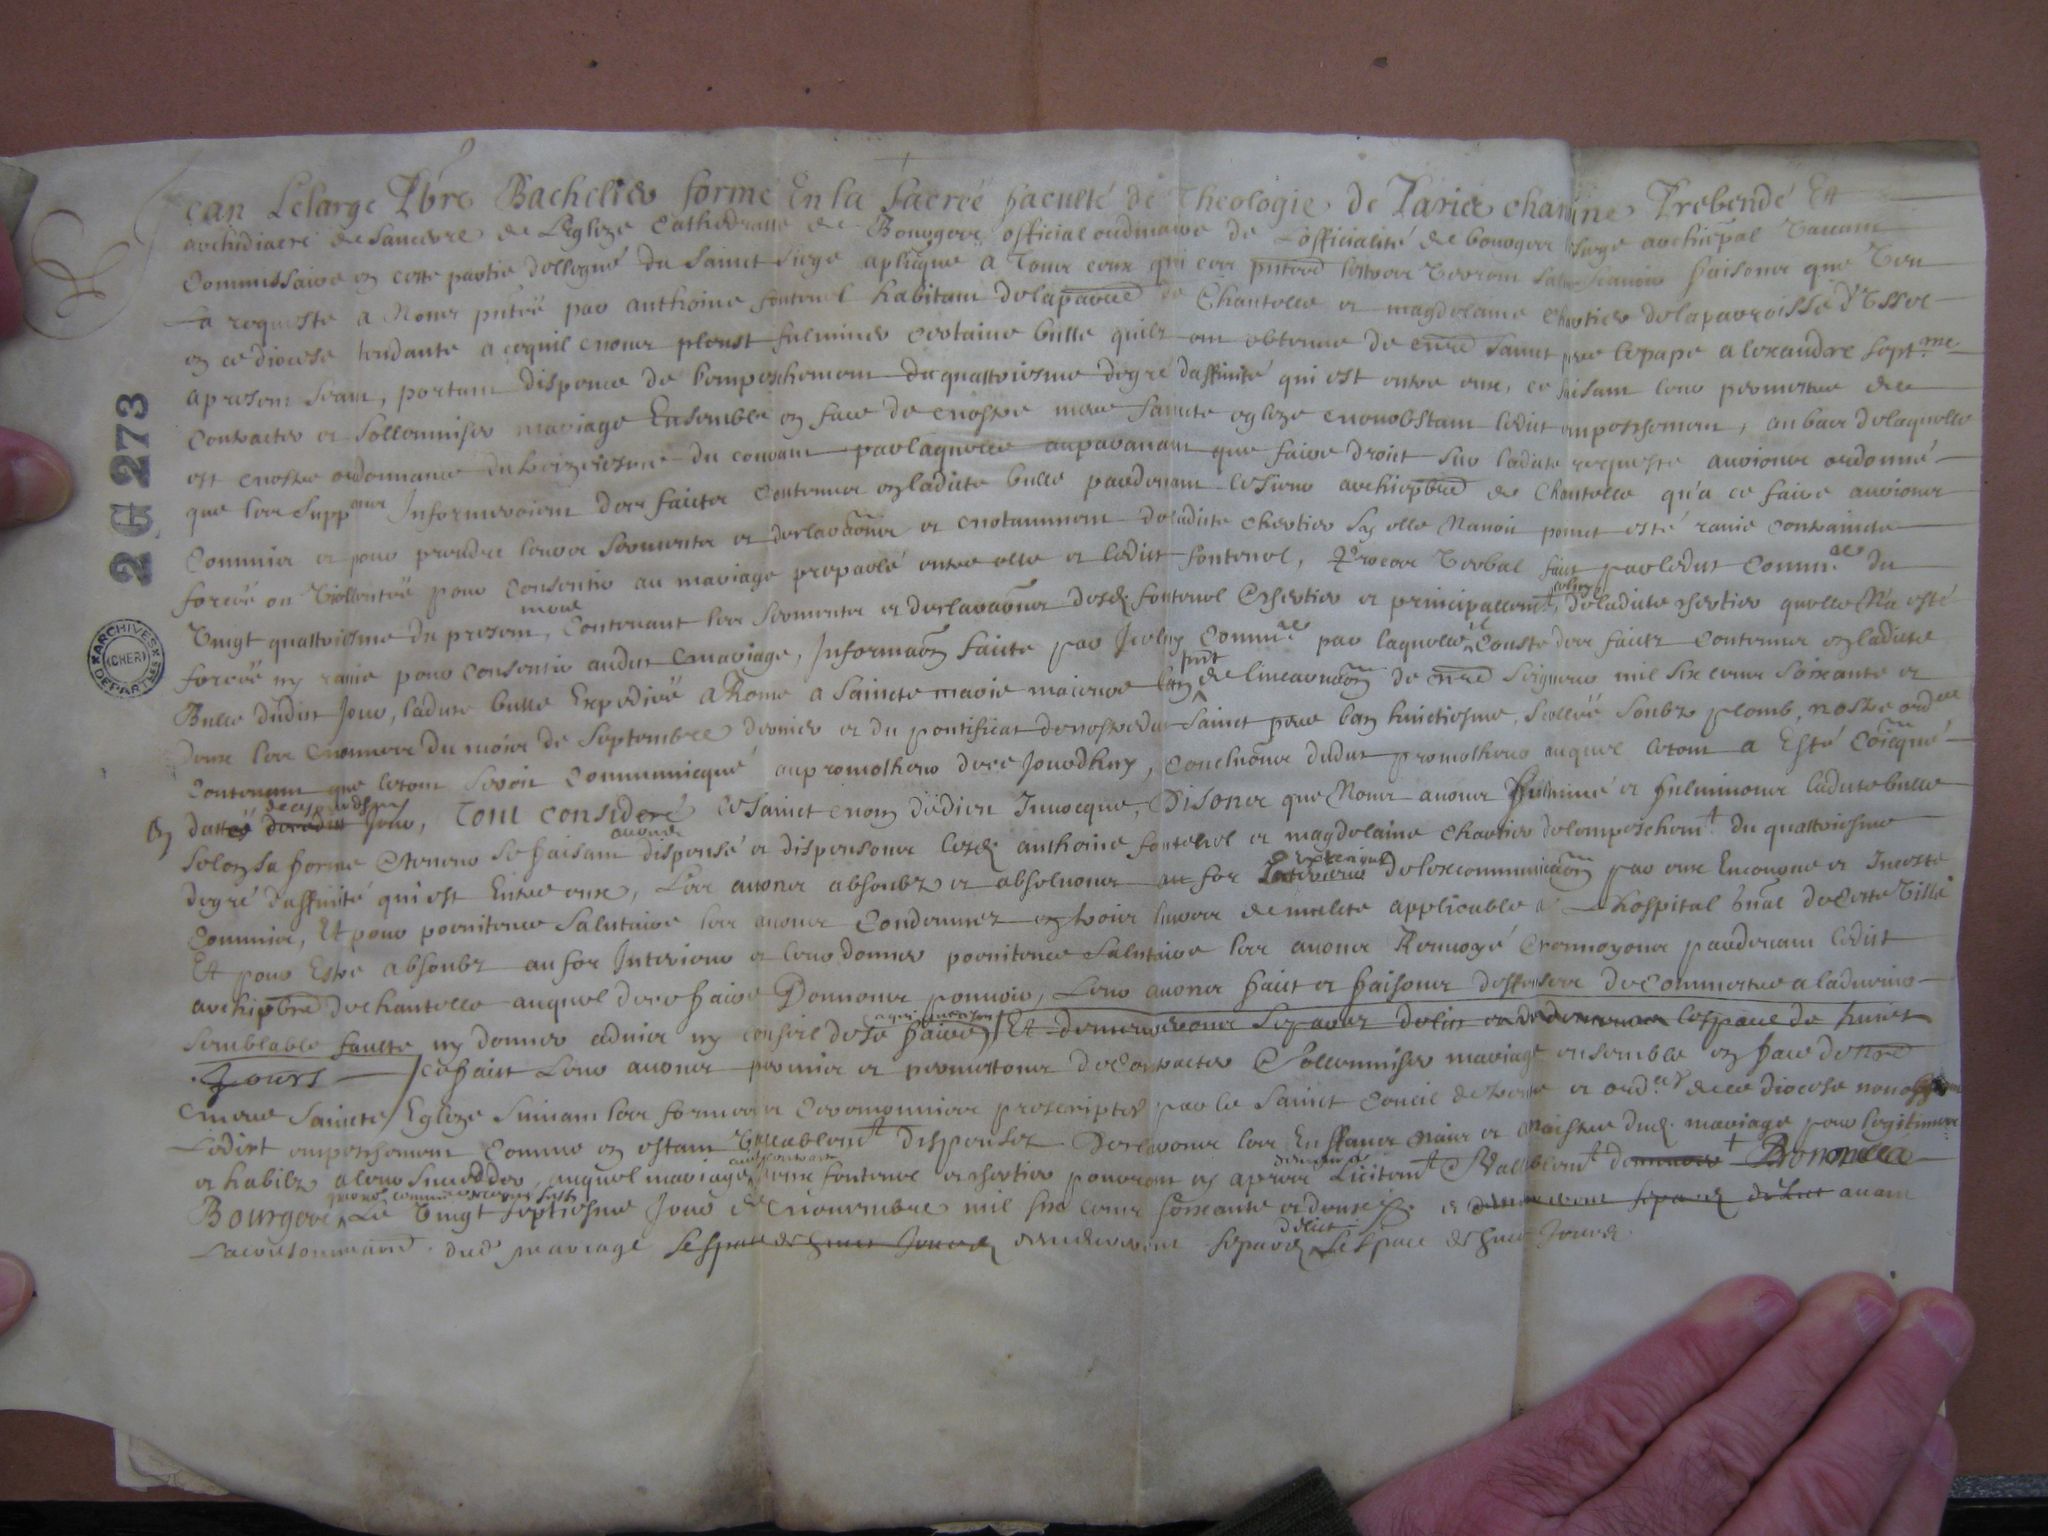 Jean Lelarge Pbre Bachelier formé En la Sacrée faculté de Theologie de Paris chanoine Prebendé Et
archidiacre de Sancerre de L'Eglize Cathedralle de Bourges, official ordinaire de L'officialité de bourges siege archiepãl Vacant
Commissaire en ceste partie dellegué du Sainct Siege aplicque a Tous ceux qui ces pñtes lettres Verront Salut Scauoir faisons que Veu
La requeste a Nous pñtée par anthoine fontenel habitant de la parrée de Chantelle et magdelaine Chertier de la parroisse d'Ussel
en ce diocese tendante a ce quil nous pleust fulminer certaine bulle quilz ont obtenue de nre Sainct pere le pape alexandre Septme
apresent seant, portant dispence de lempeschement du quattriesme degré daffinité qui est entre eux, ce faisant leur permettre de
Contracter et Sollemniser mariage Ensemble en face de nostre mere Saincte eglize nonobstant ledict empeschement, au bas de laquelle
est nostre ordonnance du treiziesme du courant par laquelle auparauant que faire droict sur ladicte requeste aurions ordonné
que les Suppans Informeroient des faictz Contenus en ladicte bulle pardeuant le Sieur archipbre de Chantelle qu'a ce faire aurions
Commis et pour prendre leurs Sermentz et declaraõns et notamment de ladicte Chertier Sy elle Nauoit poinct esté rauie Contraincte
forcée ou Viollentée pour Consentir au mariage proparlé entre elle et ledict fontenel, Procès Verbal faict par ledict Commre du
Vingt quattriesme du present mois, Contenant les Sermentz et declaraõns desdz fontenel Chertier et principallemt de ladicte chertier quelle Na esté
forcée ny rauie pour Consentir audict mariage, Informaõn faicte par Icelluy Commre par laquelle Conste des faictz Contenus en ladicte
Bulle dudict Jour, ladicte bulle Expediée a Rome a Saincte marie maieure lan de lincarnaõn de nre Seigneur mil six cens Soixante et
deux les nonnes du mois de Septembre dernier et du pontificat de nostredict Sainct pere lan huictiesme, Scellée Soubz plomb, nostre ordce
Contenant que letout Seroit Communicqué au promotheur de ce Jourdhuy, Conclusions dudict promotheur auquel letout a Esté Cõicqué
En datte de ce jourdhuy, Tout Consideré le Sainct nom de dieu Inuocque, Disons que Nous auons fulminé et fulminons ladicte bulle
Selon Sa forme & teneur Ce faisant auons dispensé et dispensons lesdz anthoine fontenel et magdelaine Chertier de lempeschemt du quattriesme
degré daffinité qui est Entre eux, Les auons absoubz et absoluons au for Exterieur de lexcommunicaõn par eux Encourue et Inceste
Commis, Et pour poenitence Salutaire les auons Condemnez en trois liures de aplicable a hospital de Cette Ville
Et pour Estre absoubz au for Interieur et leur donner poenitence Salutaire les auons Renuoyé & renuoyons pardeuant ledict
archipbre de Chantelle auquel de ce faire Donnons pouuoir, Leur auons faict et faisons deffenses de Commettre a laduenir
Semblable faulte ny donner aduis ny Conseil de le faire, Et demeureront Separez de lict lespace de huict
Jours Ce faict Leur auons permis et permettons de Contracter & Sollemniser mariage ensemble en face de nre
mere Saincte Eglize Suiuant les formes et Ceremonnies prescriptes par le Sainct Concil de trente et ordces de ce diocese nonobstant
Ledict empeschement Comme en estant Vallablemt dispensez Declarons les Enffans Nais et a Naistre dud. mariage pour legitimes
et habiles a leur Succeder, auquel mariage ainsi contracté iceux fontenel et chertier pourront cy apres Licitemt & Vallablemt Donné a
Bourges Le Vingt Septiesme Jour de nouembre mil Six cens Soixante et deux. et demeureront Separez de lict auant
Laccomplissement dud mariage demeureront Separez de lict Lespace de huict Jours
2 G 273
ARCHIVES DEPART.LES (CHER)